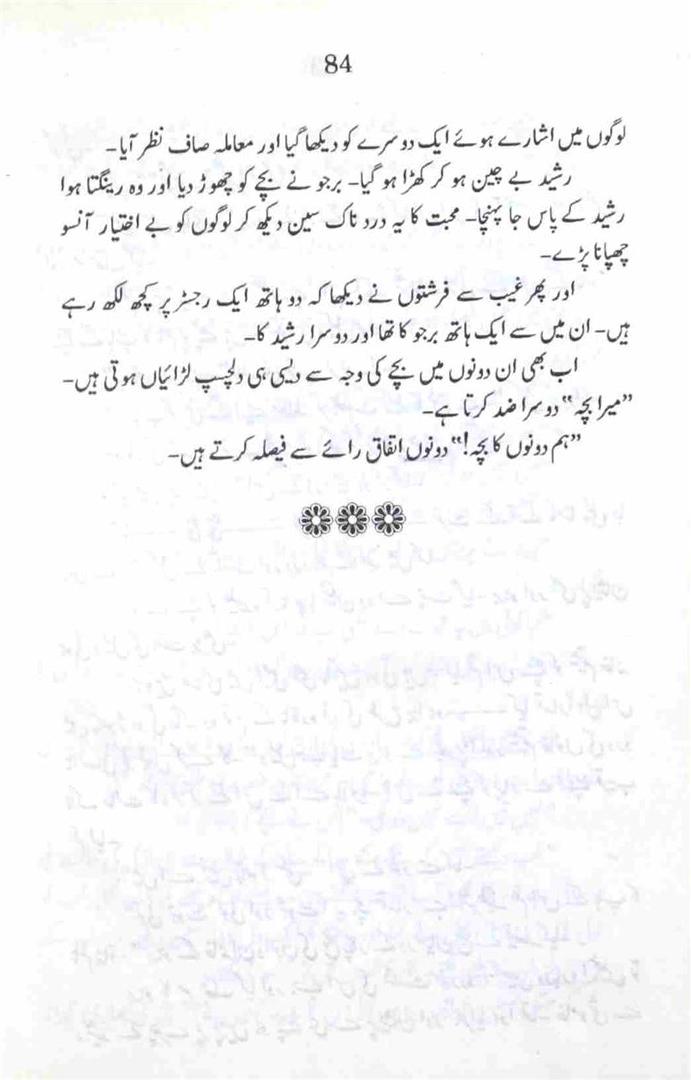 84
لوگوں میں اشارے ہوئے ایک دوسرے کو دیکھا گیا اور معاملہ صاف نظر آیا۔
رشید بے چین ہو کر کھڑا ہو گیا۔ برجو نے بچے کو چھوڑ دیا اور وہ رینگتا ہوا
رشید کے پاس جا پہنچا۔ محبت کا یہ درد ناک سین دیکھ کر لوگوں کو بے اختیار آنسو
چھپانا پڑے۔
اور پھر غیب سے فرشتوں نے دیکھا کہ دو ہاتھ ایک رجسٹر پر کچھ لکھ رہے
ہیں۔ ان میں سے ایک ہاتھ برجو کا تھا اور دوسرا رشید کا۔
اب بھی ان دونوں میں بچے کی وجہ سے ویسی ہی دلچسپ لڑائیاں ہوتی ہیں۔
”میرا بچہ“ دوسرا ضد کرتا ہے۔
”ہم دونوں کا بچہ!“ دونوں اتفاق رائے سے فیصلہ کرتے ہیں۔